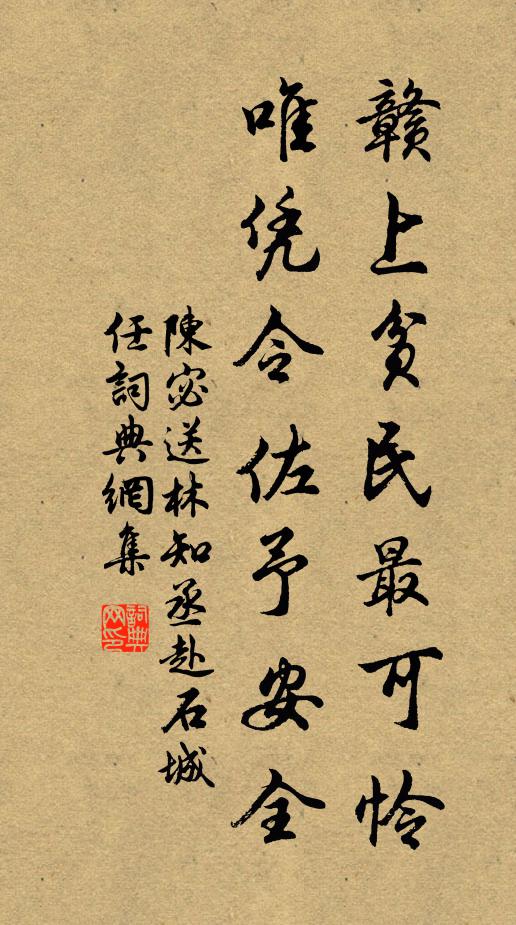 赣上贫民最可怜
唯凭令佐予安全
陳宓送林知丞赴石城
任詞典網集
詞典
网印